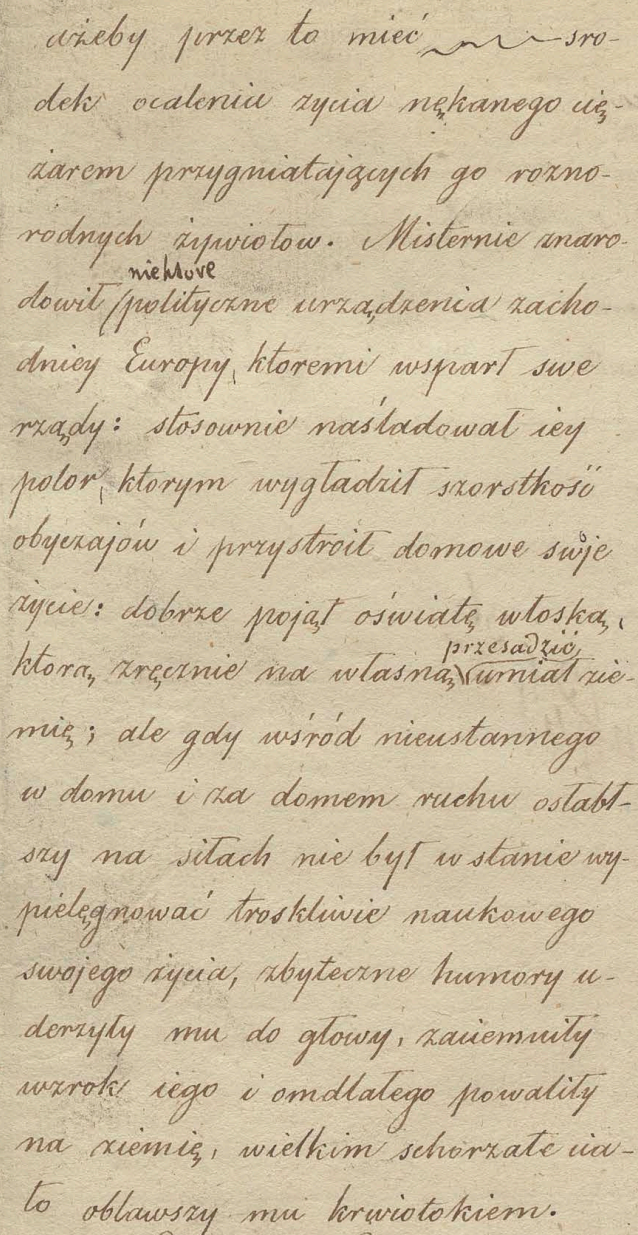 ażeby przez to mieć śro-
dek ocalenia życia nękanego cię-
żarem przygniatających go rozno-
rodnych żywiołow. Misternie znaro-
niektóre
dowił polityczne urządzenia zacho-
dniey Europy, ktoremi wsparł swe
rządy: stosownie naśladował iey
polor, ktorym wygładził szorstkość
obyczajów i przystroił domowe swoje
życie: dobrze pojął oświatę włoską,
przesadzić
ktorą zręcznie na własną umiał zie-
mię; ale gdy wśród nieustannego
w domu i za domem ruchu osłabł-
szy na siłach nie był w stanie wy-
pielęgnować troskliwie naukowego
swojego życia, zbyteczne humory u-
derzyły mu do głowy, zaciemniły
wzrok iego i omdlałego powaliły
na ziemię, wielkim schorzałe cia-
ło oblawszy mu krwiotokiem.